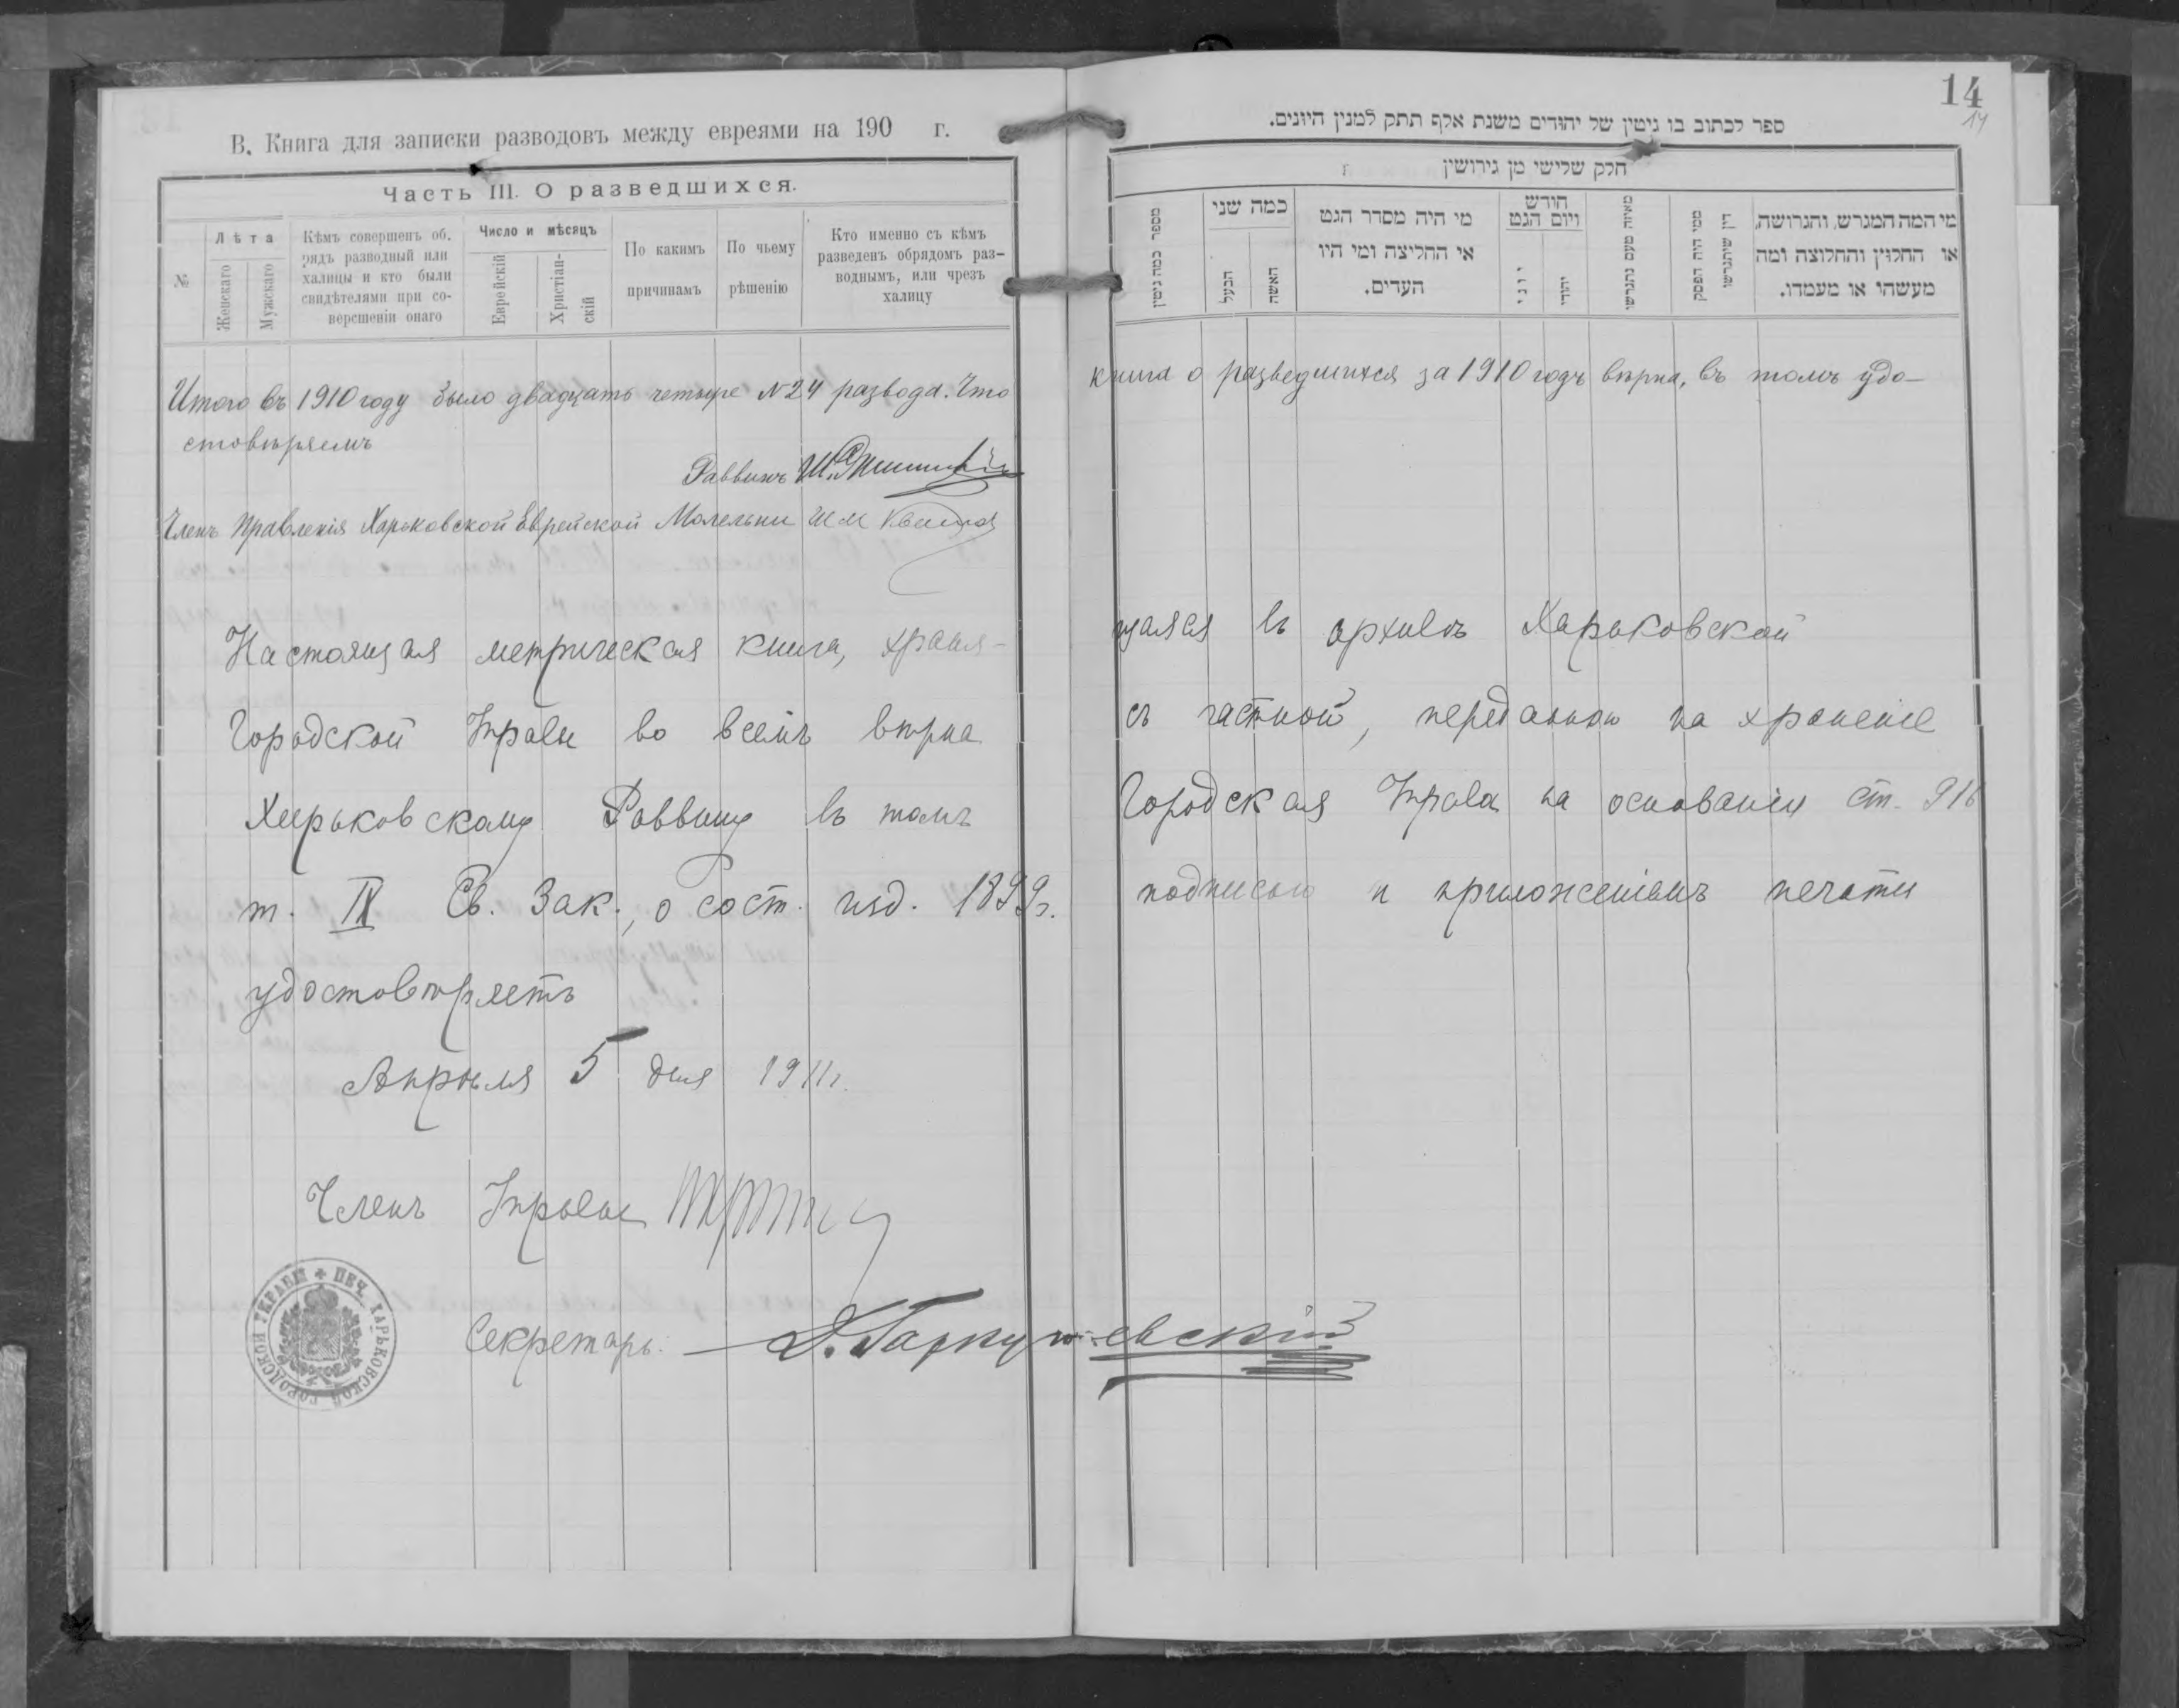 В. Книга для записки разводовъ между евреями на 190 г.
Часть III. О разведшихся.
№
Лѣта
Женскаго
Мужскаго
Кѣмъ совершенъ об-
рядъ разводный или
халицы и кто были
свидѣтелями при со-
вершеніи онаго
Число и мѣсяцъ
Еврейскій
Христіан-
скій
По какимъ
причинамъ
По чьему
рѣшенію
Кто именно съ кѣмъ
разведенъ обрядомъ раз-
воднымъ, или чрезъ
халицу
14
14
ספר לכתוב בו גיטין של יהודים משנת אלף תתק למנין היונים.
חלק שלישי מן גירושין
מספר כמה גיטין
כמה שני
הבעל
האשה
מי היה מסדר הגט
או החליצה ומי היו
העדים.
חודש
ויום הגט
יוני
יהודי
מאיזה טעם נתגרשו
ממי היה הפסק
דין שיתגרשו
מי המה המגרש, והגרושה,
או החלוץ והחלוצה ומה
מעשהו או מעמדו.
Итого въ 1910 году было двадцать четыре №24 развода. Что книга о разведшихся за 1910 годъ вѣрна, въ томъ удо-
стовѣряемъ
Раввинъ Ш.
Членъ Правленія Харьковской Еврейской Молельни Ш М
Настоящая метрическая книга, храня- щаяся въ архивѣ Харьковской
Городской Управы во всемъ вѣрна съ частной, переданною на храненіе
Харьковскому Раввину въ томъ Городская Управа на основаніи ст. 916
т. IX Св. Зак., о сост. изд. 1899г. подписью и приложеніемъ печати
удостовѣряетъ
Апрѣля 5 дня 1911г.
Членъ Управы
Секретарь
ПЕЧ. ХАРЬКОВСКОЙ ГОРОДСКОЙ УПРАВЫ